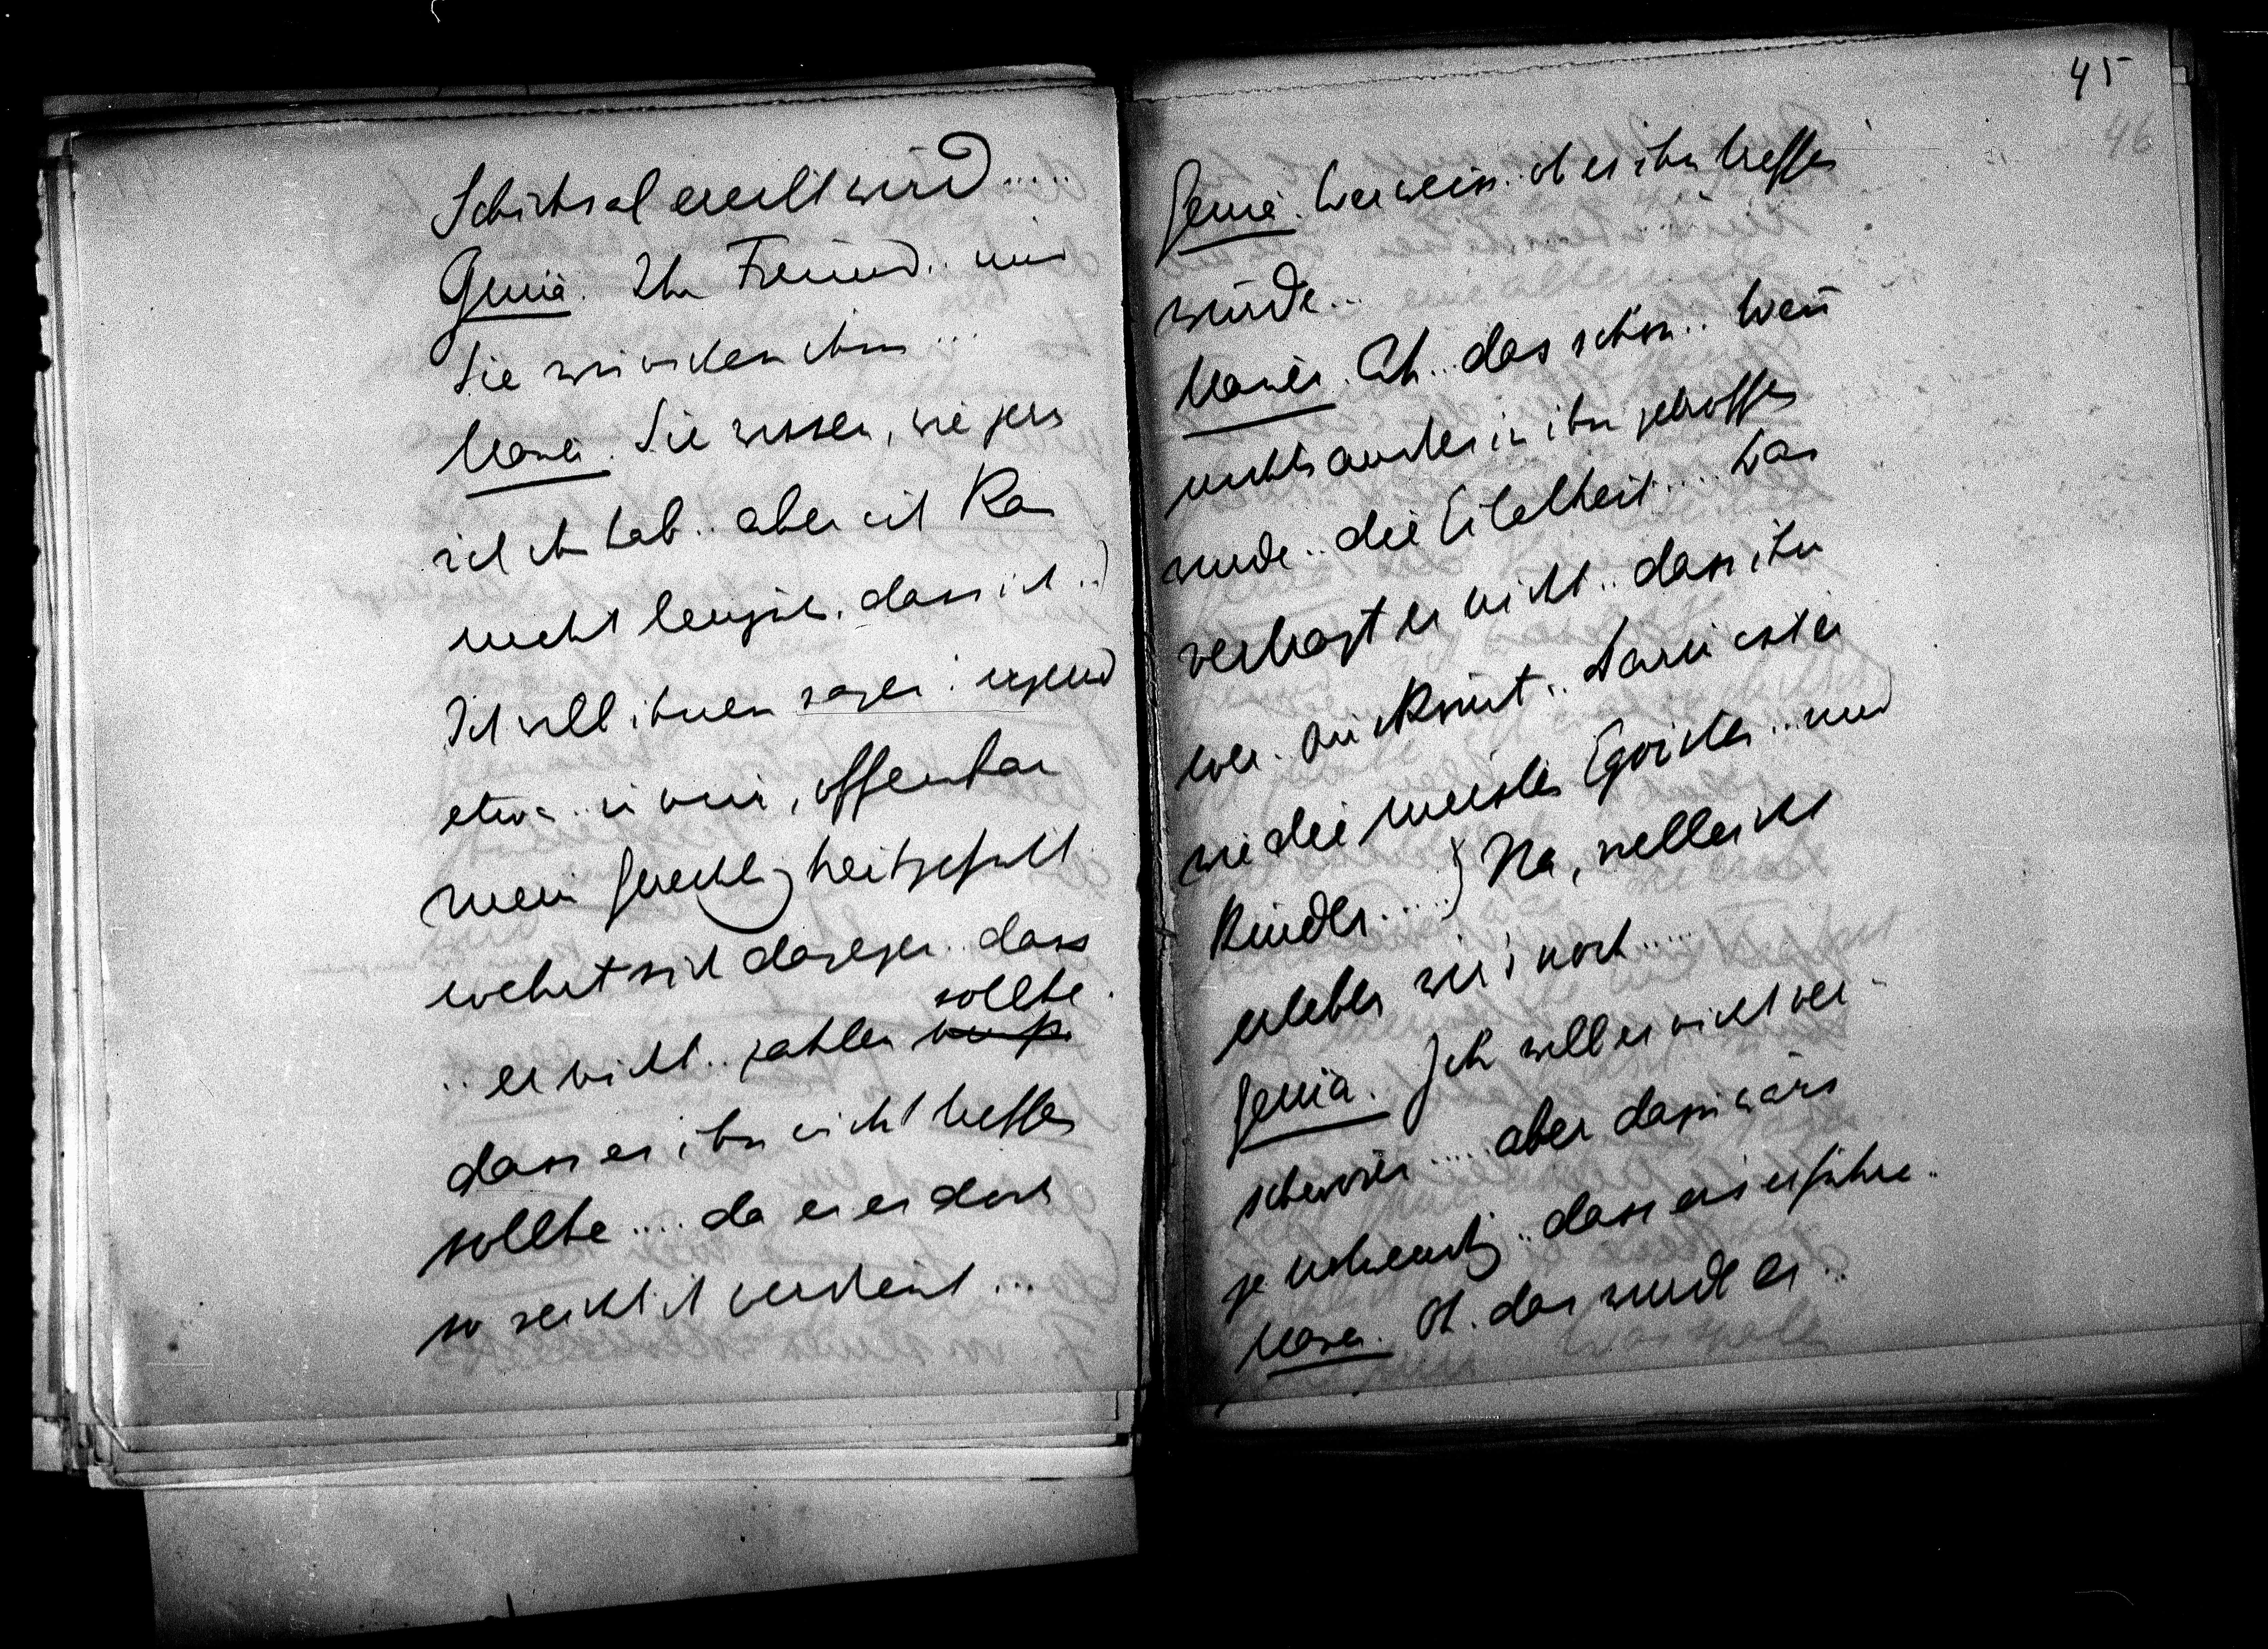 Schicksal ereilt wird.....
Genia. Ihr Freund.. und
Sie wünschen ihm...
Mauer. Sie wissen, wie gern
ich ihn hab.. aber ich kan
nicht leugnen, dass ich..)
Ich will ihnen sagen: irgend
etwas in mir, offenbar
mein Gerechtigkeitsgefühl
wehrt sich dagegen.. dass
sollte.
.. er nicht.. zahlen
dass es ihn nicht treffen
sollte.... da er es doch
so reichlich verdient...
45
46
Genia. Wer weiss.. ob es ihn treffen
würde...
Mauer. Oh.. das schon.. Wen̄
nichts andres in ihm getroffen
wurde.. die Eitelkeit.... Das
verträgt er nicht.. dass ihm
wer. Darin ist er
wie die meisten Egoisten.. und
Kinder.....) Na, vielleicht
erleben wir's noch.....
Genia. Ich will es nicht ver-
schwören..... aber dazu wärs
ja notwendig.. dass er's erführe..
Mauer. Oh. das würde er..